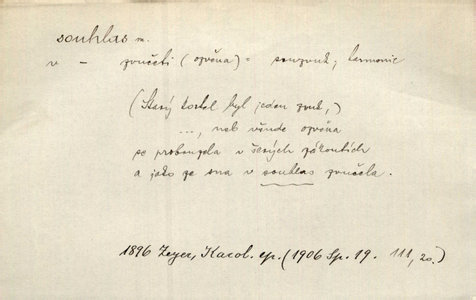 souhlas m.
v – zvučeti (ozvěna) = souzvuk, harmonie
(Starý kostel byl jeden zvuk,)
..., neb všude ozvěna
se probouzela v tesných zákoutích
a jako ze sna v souhlas zvučela.
1896 Zeyer, Karol. ep. (1906 Sp. 19. 111, 20.)